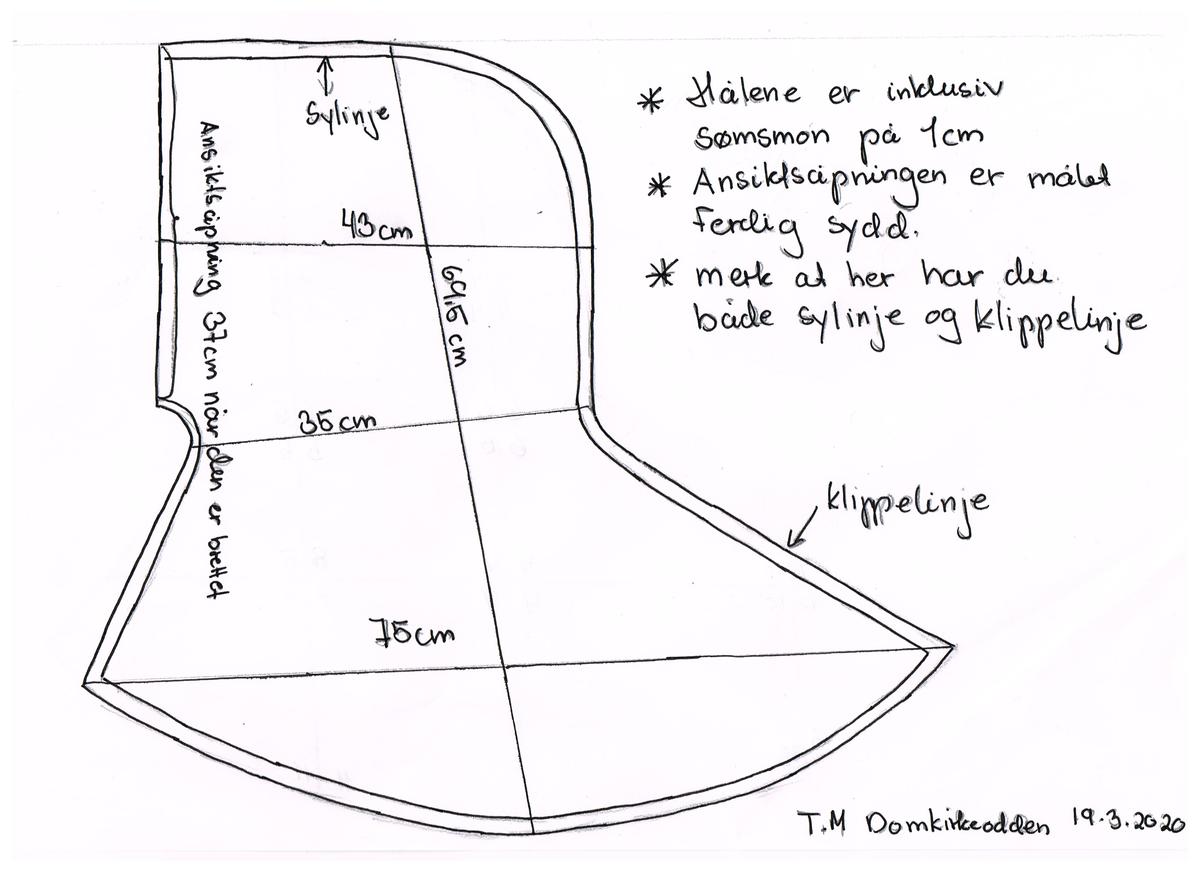 Sylinje
* Målene er inklusiv
sømsmon på 1cm
* Ansiktsåpningen er målet
ferdig sydd.
* merk at her har du
både sylinje og klippelinje
Ansiktsåpning 37cm når den er brettet
43cm
69,5 cm
35cm
klippelinje
75cm
T.M Domkirkeodden 19.3.2020